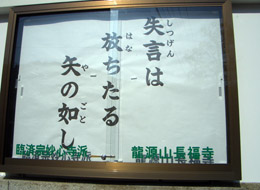 失言は
しつげん
放ちたる
はな
矢の如し
や ごと
龍源山長福寺
臨済宗妙心寺派